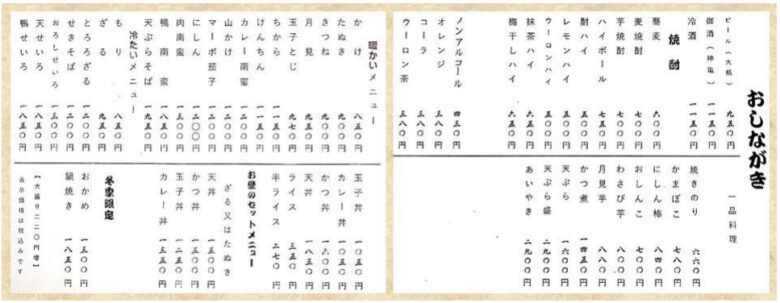 おしながき
ビール(大瓶) 九五〇円
御酒(神亀) 一一五〇円
冷酒 一一五〇円
焼酎
蕎麦 六〇〇円
麦焼酎 七〇〇円
芋焼酎 七〇〇円
ハイボール 七五〇円
酎ハイ 五五〇円
レモンハイ 五五〇円
ウーロンハイ 五五〇円
抹茶ハイ 六五〇円
梅干しハイ 六五〇円
ノンアルコール 四三〇円
オレンジ 三八〇円
コーラ 三八〇円
ウーロン茶 三八〇円
一品料理
焼きのり 六六〇円
かまぼこ 七八〇円
にしん棒 八四〇円
おしんこ 七〇〇円
わさび芋 八〇〇円
月見芋 八八〇円
かつ煮 一四五〇円
天ぷら 一六〇〇円
天ぷら盛 二九〇〇円
あいやき 二九〇〇円
暖かいメニュー
かけ 八五〇円
たぬき 九五〇円
きつね 九五〇円
月見
玉子とじ 九七〇円
ちから 一一五〇円
けんちん 一一五〇円
カレー南蛮 一二〇〇円
山かけ 一二〇〇円
マーボ茄子
にしん
肉南蛮
鴨南蛮 一八五〇円
天ぷらそば 一九五〇円
冷たいメニュー
もり 八五〇円
ざる 九五〇円
とろろざる
せきそば
おろしせいろ
天せいろ 一九五〇円
鴨せいろ 一八五〇円
玉子丼 一〇五〇円
カレー丼
かつ丼
天丼 一八五〇円
ライス 三五〇円
半ライス 二七〇円
お昼のセットメニュー
ざる又はたぬき
天丼
かつ丼
玉子丼
カレー丼
冬季限定
おかめ 一三〇〇円
鍋焼き 一八五〇円
【大盛り二二〇円増】
表示価格は税込みです